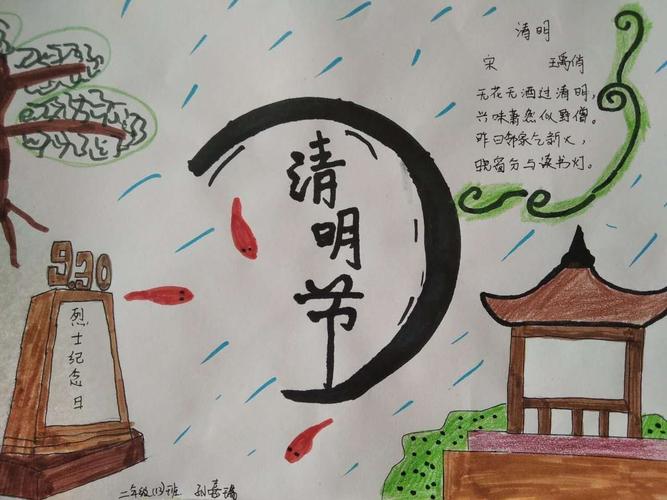 清明
宋 王禹偁
无花无酒过清明,
兴味萧然似野僧。
昨日邻家乞新火,
晓窗分与读书灯。
清明节
9.30
烈士纪念日
二年级(13)班 孙嘉瑞